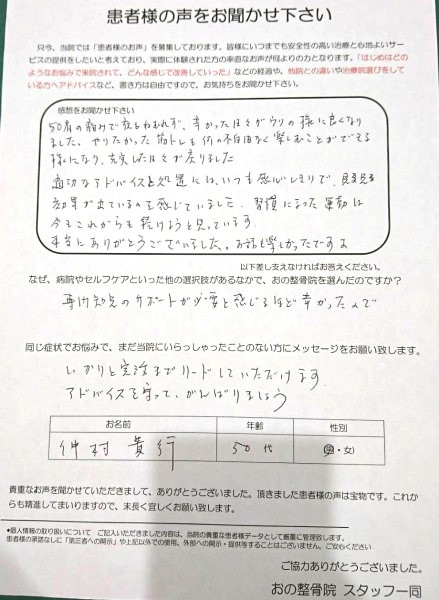 患者様の声をお聞かせ下さい
只今、当院では「患者様のお声」を募集しております。皆様にいつまでも安全性の高い治療と心地よいサー
ビスの提供をしたいと考えており、実際に体験された方の率直なお声が何よりの力となります。「はじめはど
のようなお悩みで来院されて、どんな感じで改善していった」などの経過や、他院との違いや治療院選びをして
いる方へアドバイスなど、書き方は自由ですので、お気持ちをお聞かせ下さい。
感想をお聞かせ下さい
50肩の痛みで夜もねむれず、辛かった日々がウソの様に良くなり
ました。やりたかった筋トレも何の不自由なく楽しむことができる
様になり、充実した日々が戻りました
適切なアドバイスと処置には、いつも感心しきりで、見る見る
効果が出ているのを感じていました。習慣になった運動は
今もこれからも続けようと思っています。
本当にありがとうございました。お話も楽しかったですよ
以下差し支えなければお答えください。
なぜ、病院やセルフケアといった他の選択肢があるなかで、おの整骨院を選んだのですか?
専門知識のサポートが必要と感じるほど辛かったんで
同じ症状でお悩みで、まだ当院にいらっしゃったことのない方にメッセージをお願い致します。
しっかりと完治までリードしていただけます
アドバイスを守って、がんばりましょう
お名前 年齢 性別
仲村 貴行 50代 (男・女)
貴重なお声を聞かせていただきまして、ありがとうございました。頂きました患者様の声は宝物です。これか
らも精進してまいりますので、末長く宜しくお願い致します。
●個人情報の取り扱いについて ご記入いただきました内容は、当院の貴重な患者様データとして厳重に管理致します。
患者様の承諾なしに「第三者への開示」や上記以外での使用、外部への開示・提供等することはございません。ご安心ください
ご協力ありがとうございました。
おの整骨院 スタッフ一同